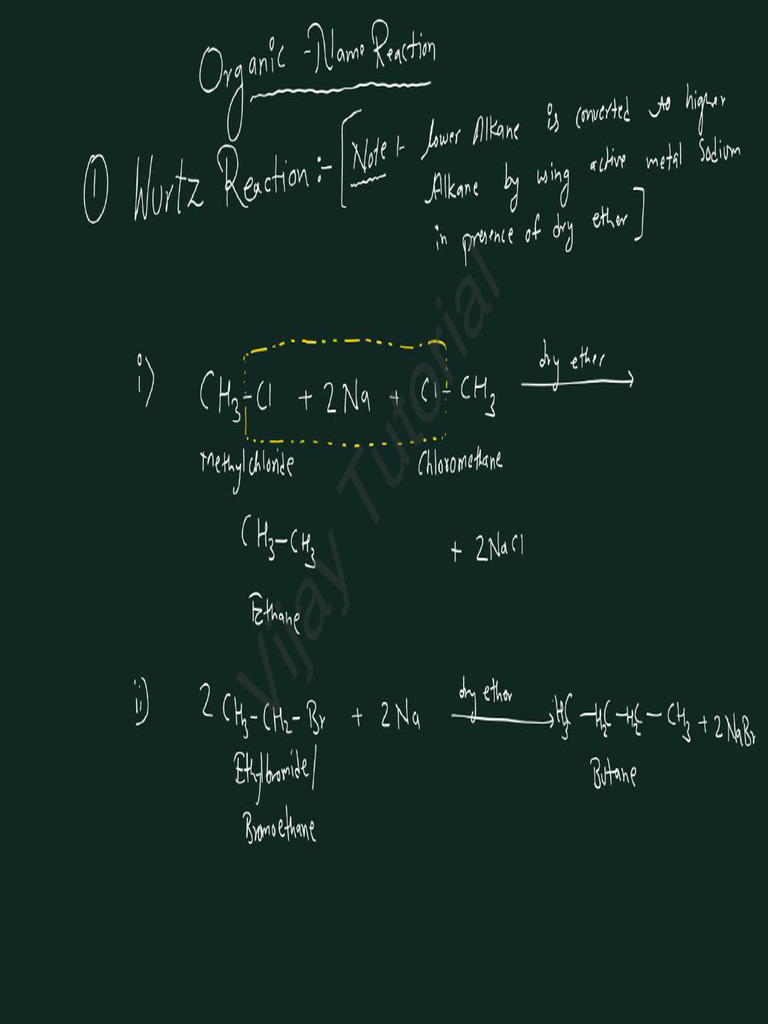 Organic Name Reaction
① Wurtz Reaction :- [Note :- lower Alkane is converted to higher
Alkane by using active metal Sodium
in presence of dry ether]
i) CH3-Cl + 2Na + Cl-CH3 dry ether →
Methylchloride Chloromethane
CH3-CH3 + 2NaCl
Ethane
ii) 2CH3-CH2-Br + 2Na dry ether → H3C-H2C-H2C-CH3 + 2NaBr
Ethylbromide/ Butane
Bromoethane
Vijay Tutorial